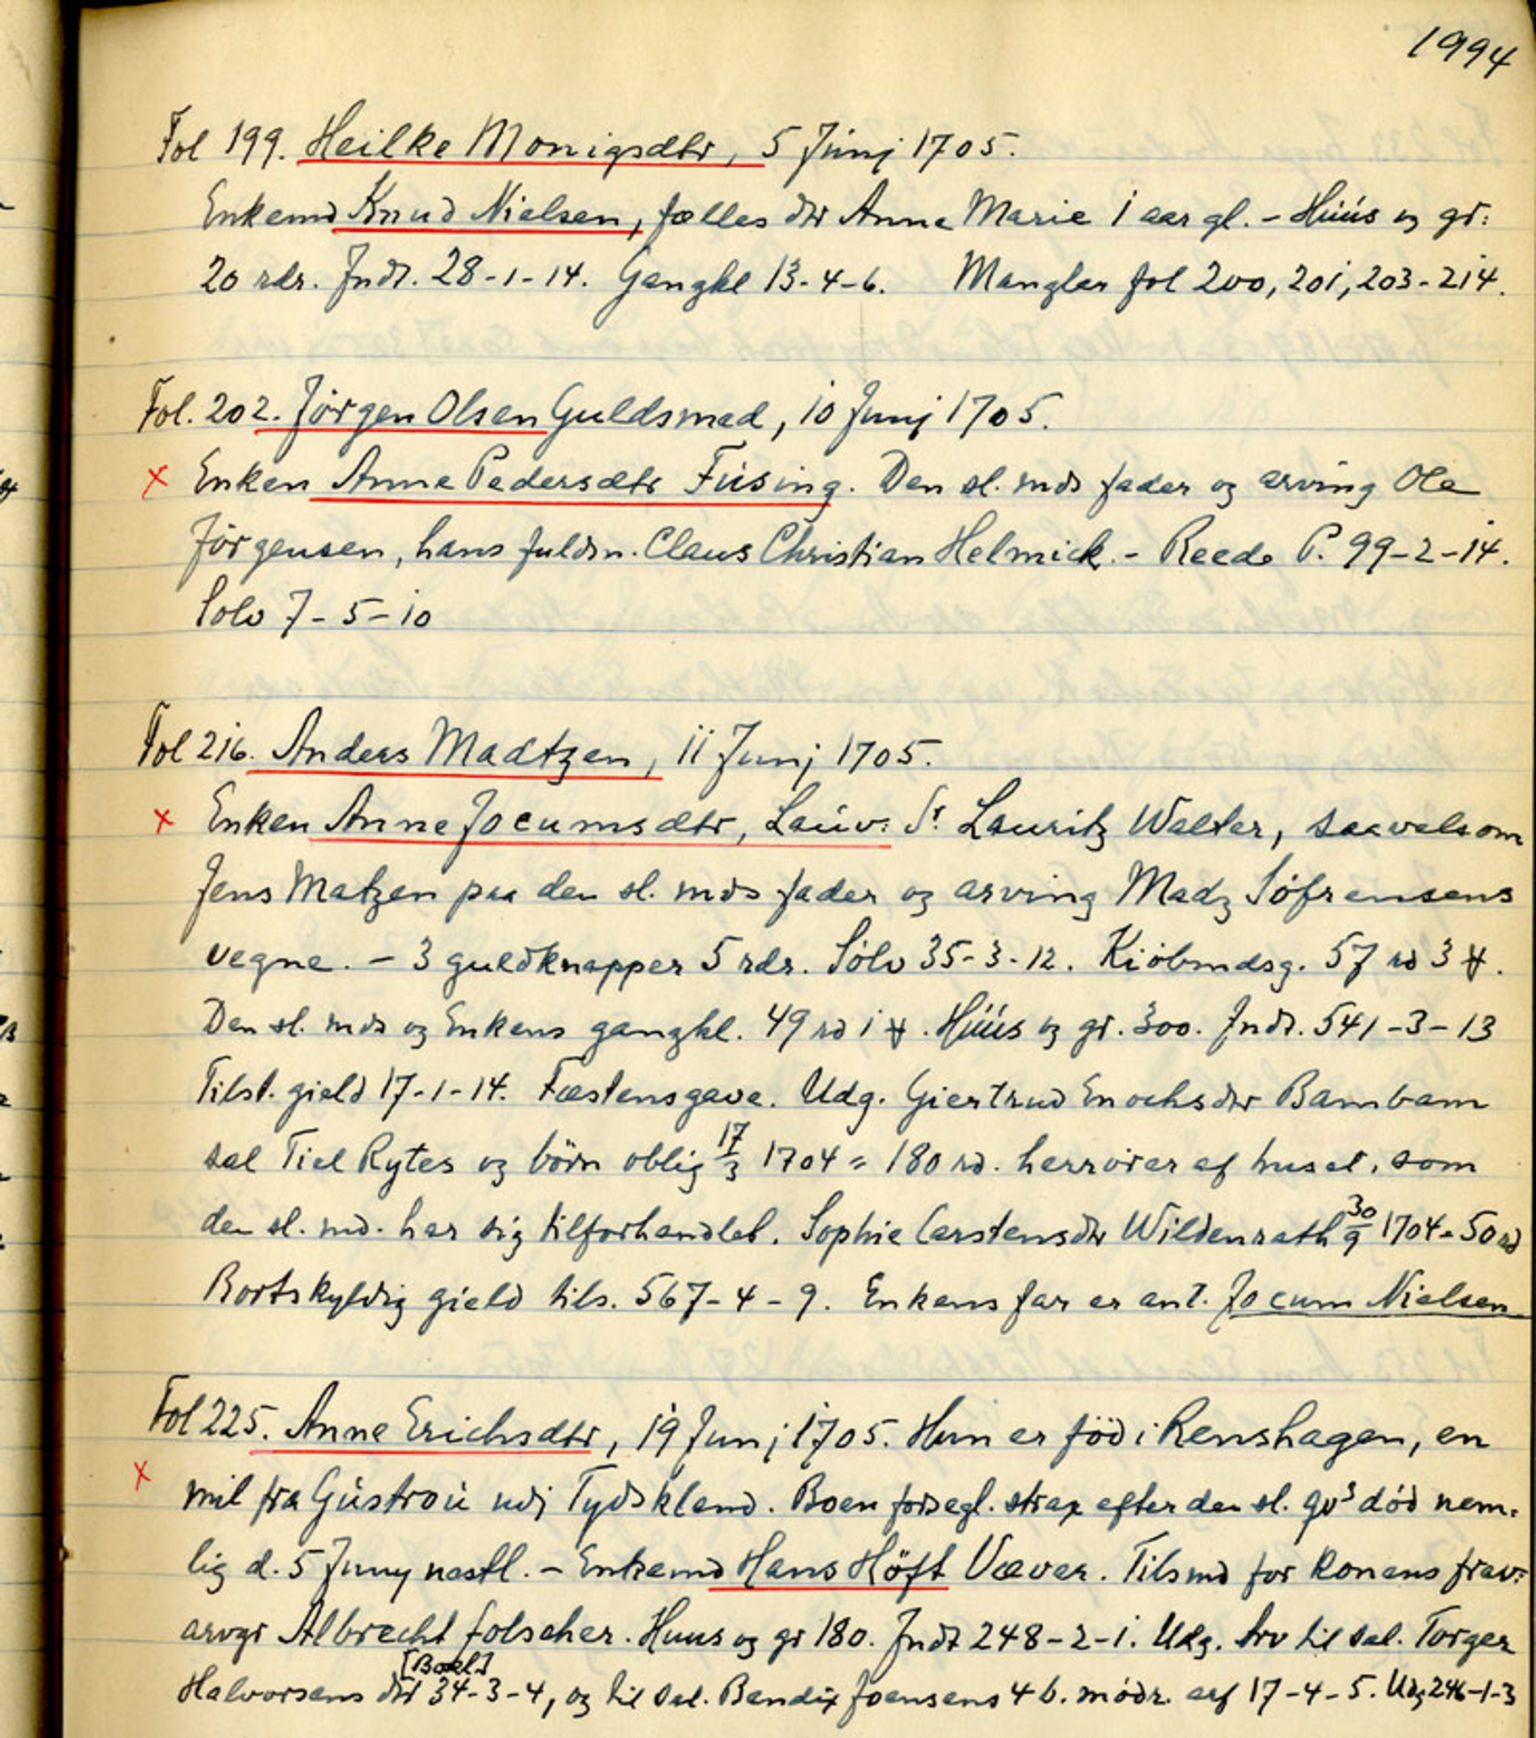 1994
Fol 199. Heilke Monigsdtr, 5 Junj 1705.
Enkemd Knud Nielsen, fælles dtr Anne Marie 1 aar gl. - Huus og gr:
20 rdr. Indt. 28-1-14. Gangkl 13-4-6. Mangler fol 200, 201, 203-214.
Fol. 202. Jörgen Olsen Guldsmed, 10 Junj 1705.
x Enken Anne Pedersdtr Füsing. Den sl. mds fader og arving Ole
Jörgensen, hans fuldm. Claus Christian Helmick. - Reede P. 99-2-14.
Sølv 7-5-10
Fol 216. Anders Madtzen, 11 Junj 1705.
x Enken Anne Jocumsdtr, Lauv: Sr. Lauritz Walter, saavelsom
Jens Matzen paa den sl. mds fader og arving Madz Söfrensens
vegne. - 3 guldknapper 5 rdr. Sölv 35-3-12. Kiöbmdsg. 57 rd 3 ₶.
Den sl. mds og Enkens gangkl. 49 rd 1 ₶. Huus og gr. 300. Indt. 541-3-13
Tilst. gield 17-1-14. Fæstensgave. Udg. Giertrud Enochsdtr Bambam
sal Tiel Rytes og börn oblig 17/3 1704 = 180 rd. herrörer af huset, som
den sl. md. har sig tilforhandlet. Sophie Carstensdtr Wildenrath 30/9 1704 = 50 rd
Bortskyldig gield tils. 567-4-9. Enkens far er ant. Jocum Nielsen
Fol 225. Anne Erichsdtr, 19 Junj 1705. Hun er föd i Renshagen, en
x mil fra Güstrou udj Tydskland. Boen forsegl. strax efter den sl. qvs död nem-
lig d. 5 Juny nestl. - Enkemd Hans Höft Væver. Tilsmd for konens frav:
arvgr Albrecht Folscher. Huus og gr 180. Indt 248-2-1. Udg. arv til sal. Torger
[Bakl]
Halvorsens dtr 34-3-4, og til sal. Bendix Joensens 4 b. mödr. arf 17-4-5. Udg 246-1-3